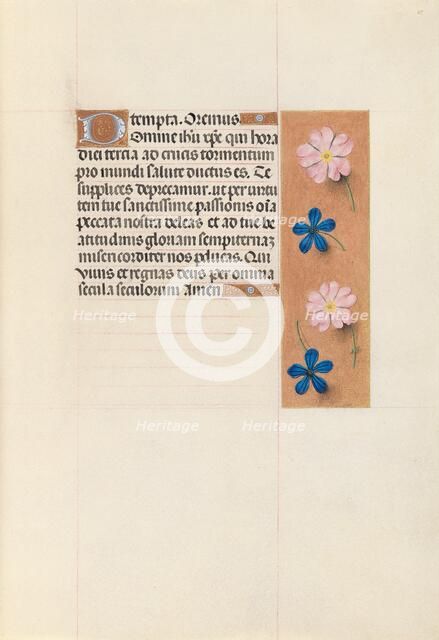 tempta. Oremus.
Domine ihu xpe qui hora
diei tercia ad crucis tormentum
pro mundi salute ductus es. Te
supplices deprecamur. ut per virtu
tem tue sanctissime passionis oia
peccata nostra deleas et ad tue be
atitudinis gloriam sempiternaz
misericorditer nos perducas. Qui
vivis et regnas deus per omnia
secula seculorum Amen
Heritage
Heritage
Heritage
Heritage
Heritage
Heritage